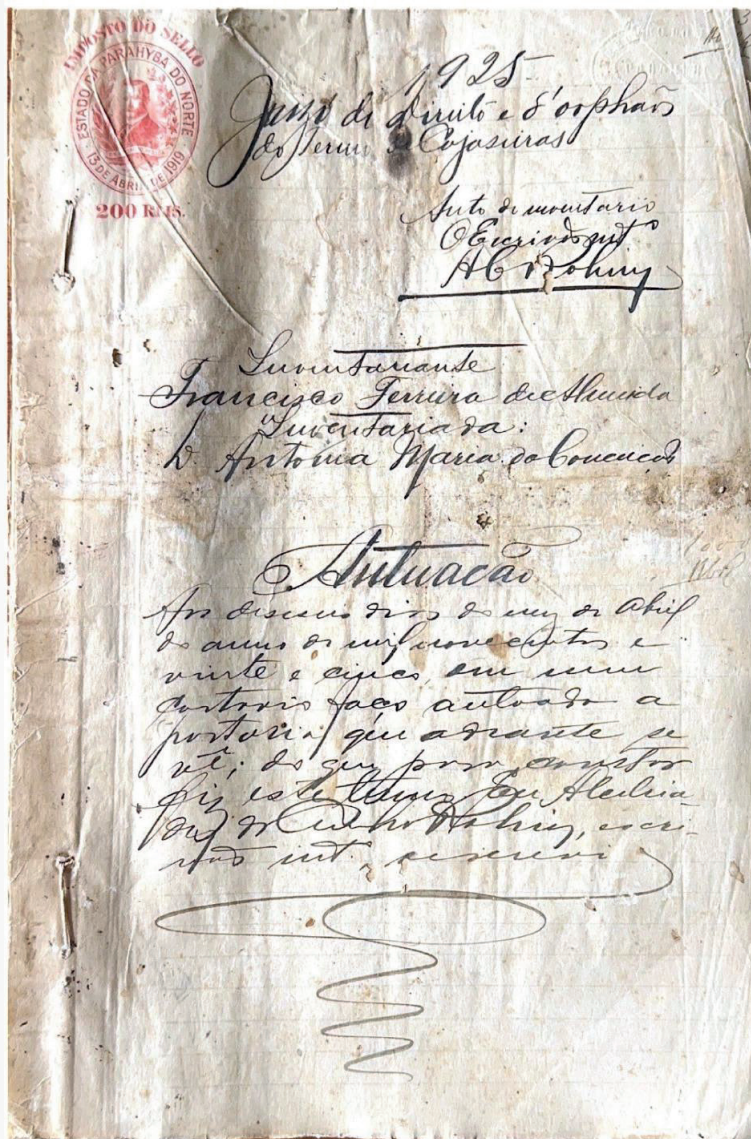 IMPOSTO DO SELLO
ESTADO DA PARAHYBA DO NORTE
13 DE ABRIL DE 1919
200 RÉIS.
1925
Juizo de Direito e d'orphaõs
do termo de Cajaseiras
Auto de inventario
O Escrivão intº
Inventariante
Francisco Ferreira de Almeida
Inventariada:
D. Antonia Maria da Conceicão
Autuacão
Aos deseseis dias do mez de Abril
do anno de mil nove centos e
vinte e cinco, em meu
cartorio faço autoado a
portaria que adiante se
vê; do que para constar
fiz este termo. Eu
escri-
vão intº, escrevi